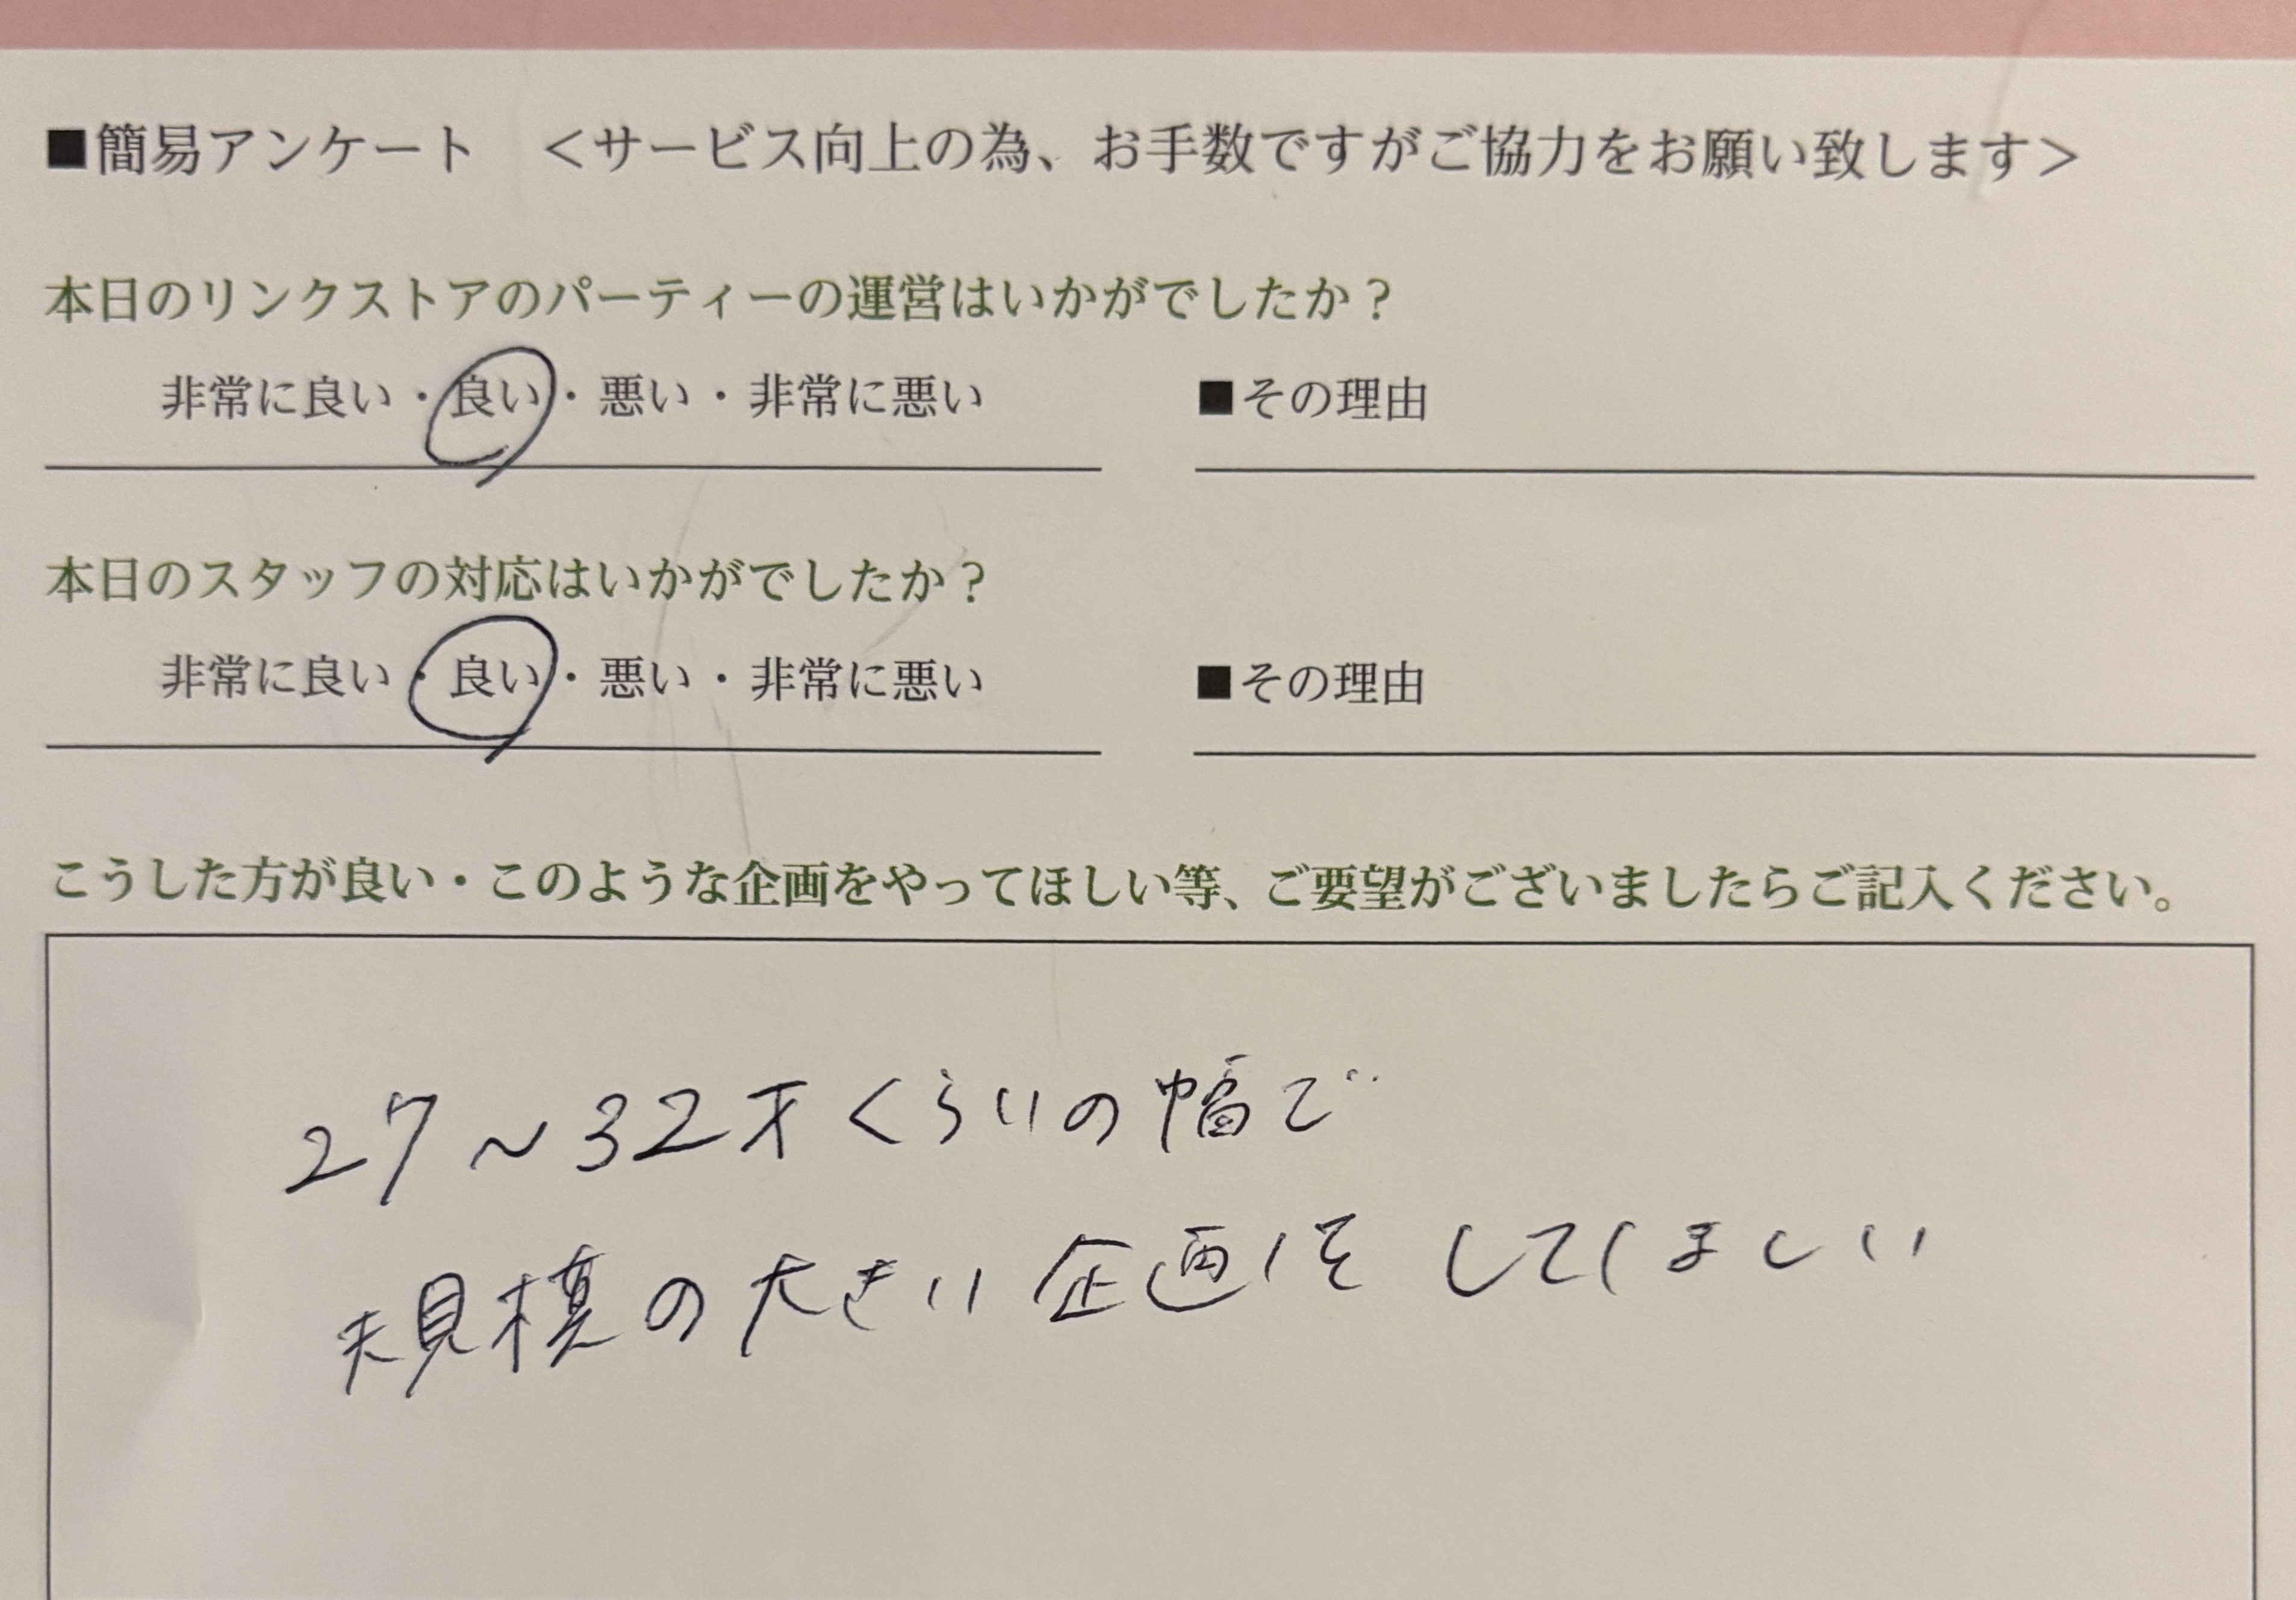 ■簡易アンケート　＜サービス向上の為、お手数ですがご協力をお願い致します＞
本日のリンクストアのパーティーの運営はいかがでしたか？
非常に良い・良い・悪い・非常に悪い　■その理由
本日のスタッフの対応はいかがでしたか？
非常に良い・良い・悪い・非常に悪い　■その理由
こうした方が良い・このような企画をやってほしい等、ご要望がございましたらご記入ください。
27～32才くらいの幅で
規模の大きい企画をしてほしい